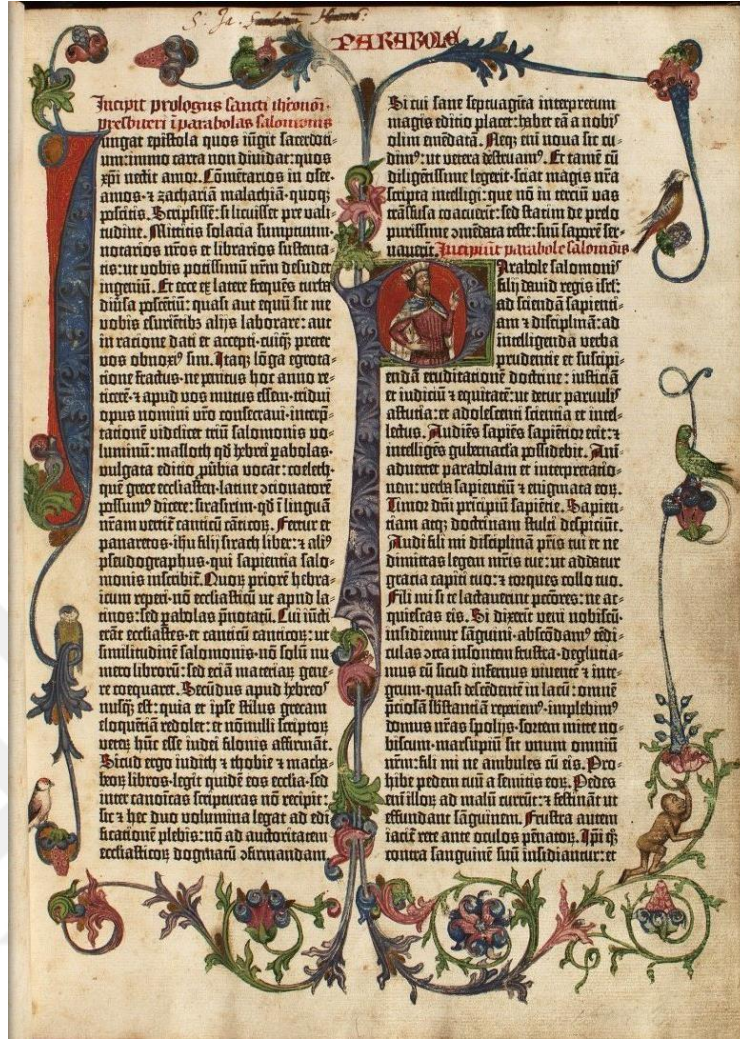 PARABOLE
Incipit prologus sancti iheronimi
presbiteri ī parabolas salomonis
Iungat epistola quos iūgit sacerdoti-
um: immo carta non diuidat: quos
xp̄i nectit amor. Cōmētarios in osee.
amos. ⁊ zachariā malachiā. quoqꝫ
poscitis. Scripsissē: si licuisset pre vali-
tudine. Mittitis solacia sumptuum.
notarios nr̄os et librarios sustenta-
tis: ut vobis potissimū nr̄m desudet
ingeniū. Et ecce ex latere frequēs turba
diūsa poscētiū: quasi aut equū sit me
vobis esurietibꝫ alijs laborare: aut
in ratione dati et accepti. cuiqꝫ preter
vos obnoxiꝰ sim. Itaqꝫ lōga egrota-
tione fractus. ne penitus hoc anno re-
ticerē. ⁊ apud vos mutus essem. tridui
opus nomini vr̄o consecraui. interp̄-
tationē videlicet triū salomonis vo-
luminū: masloth qd̄ hebrei ꝑabolas.
vulgata editio ꝓūbia vocat: coeleth.
quē grece ecclīasten. latine ɔcionatorē
possumꝰ dicere: sirasirim. qd̄ ī linguā
nr̄am vertit̄ canticū cāticoꝝ. Fertur et
panaretos. ihu filij sirach liber: ⁊ aliꝰ
pseudographus. qui sapientia salo-
monis inscribit̄. Quoꝝ priorē hebra-
icum reperi. nō ecclesiasticū ut apud la-
tinos: sed ꝑabolas p̄notatū. Cui iūcti
erāt ecclīastes. et canticū canticoꝝ: ut
similitudinē salomonis. nō solū nu-
mero librorū: sed eciā materiaꝝ gene-
re coequaret. Secūdus apud hebreoꝰ
nusqꝫ est: quia et ipse stilus grecam
eloquētiā redolet: et nōnulli scriptoꝝ
veterꝫ hūc esse iudei filonis affirmāt.
Sicud ergo iudith ⁊ thobie ⁊ macha-
beoꝝ libros. legit quidē eos ecclīa. sed
inter canoīcas scripturas nō recipit:
sic ⁊ hec duo volumina legat ad edi-
ficationē plebis: nō ad auctoritatem
ecclīasticoꝝ dogmatū ɔfirmandam.
Si cui sane septuagīta interpretum
magis editio placet: habet eā a nobiꝭ
olim emēdatā. Neqꝫ em̄ noua sic cu-
dimꝰ: ut vetera destruamꝰ. Et tamē cū
diligētissime legerit. sciat magis nr̄a
scripta intelligi: que nō in terciū vas
trāsfusa coacuerīt: sed statim de prelo
purissime ɔmēdata teste: suū saporē ser-
uauerīt. Incipiūt parabole salomōis
Parabole salomoniꝭ
filij dauid regis isrl̄:
ad sciendā sapienti-
am ⁊ disciplinā: ad
intelligendā verba
prudentie et suscipi-
endā eruditationē doctrine: iusticiā
et iudiciū ⁊ equitatē: ut detur paruuliꝭ
astutia: et adolescenti scientia et intel-
lectus. Audiēs sapiēs sapiētior erit: ⁊
intelligēs gubernacła possidebit. Ani-
aduertet parabolam et interpretatio-
nem: verba sapientiū ⁊ enigmata eoꝝ.
Timor dn̄i principiū sapiētie. Sapien-
tiam atqꝫ doctrinam stulti despiciūt.
Audi fili mi disciplinā pr̄is tui et ne
dimittas legem mr̄is tue: ut addatur
gracia capiti tuo: ⁊ torques collo tuo.
Fili mi si te lactauerint peccatores: ne ac-
quiescas eis. Si dixerīt veni nobiscū.
insidiemur sāguini. abscōdamꝰ tēdi-
culas ɔtra insontem frustra. deglucia-
mus eū sicud infernus viuentē ⁊ inte-
grum. quasi descēdentē in lacū: omnē
p̄ciosā sb̄stantiā reperiemꝰ. implebimꝰ
domus nr̄as spolijs. sortem mitte no-
biscum. marsupiū sit vnum omniū
nr̄m: fili mi ne ambules cū eis. Pro-
hibe pedem tuū a semitis eoꝝ. Pedes
em̄ illoꝝ ad malū currūt: ⁊ festināt ut
effundant sāguinem. Frustra autem
iacit̄ rete ante oculos pēnatoꝝ. Ip̄i qꝫ
contra sanguinē suū insidiantur: et